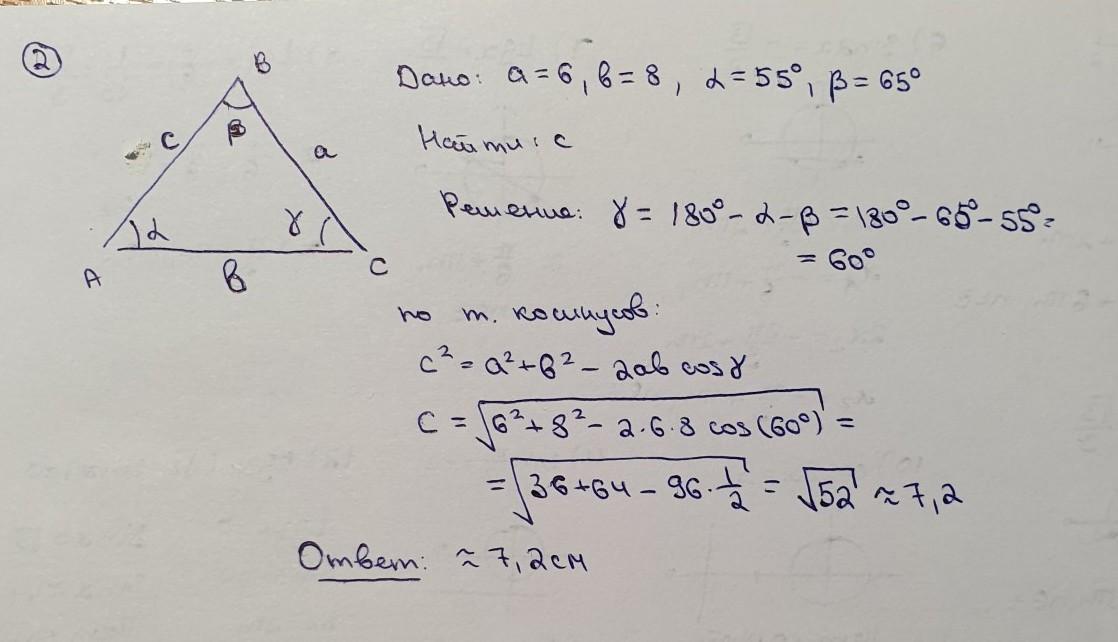 ②
B
Дано: a = 6, в = 8, α = 55°, β = 65°
c
β
a
Найти: c
α
γ
Решение: γ = 180° - α - β = 180° - 65° - 55° =
= 60°
A
в
C
по т. косинусов:
c² = a² + в² - 2aв cosγ
c = √(6² + 8² - 2·6·8 cos(60°)) =
= √(36 + 64 - 96·1/2) = √52 ≈ 7,2
Ответ: ≈ 7,2 см